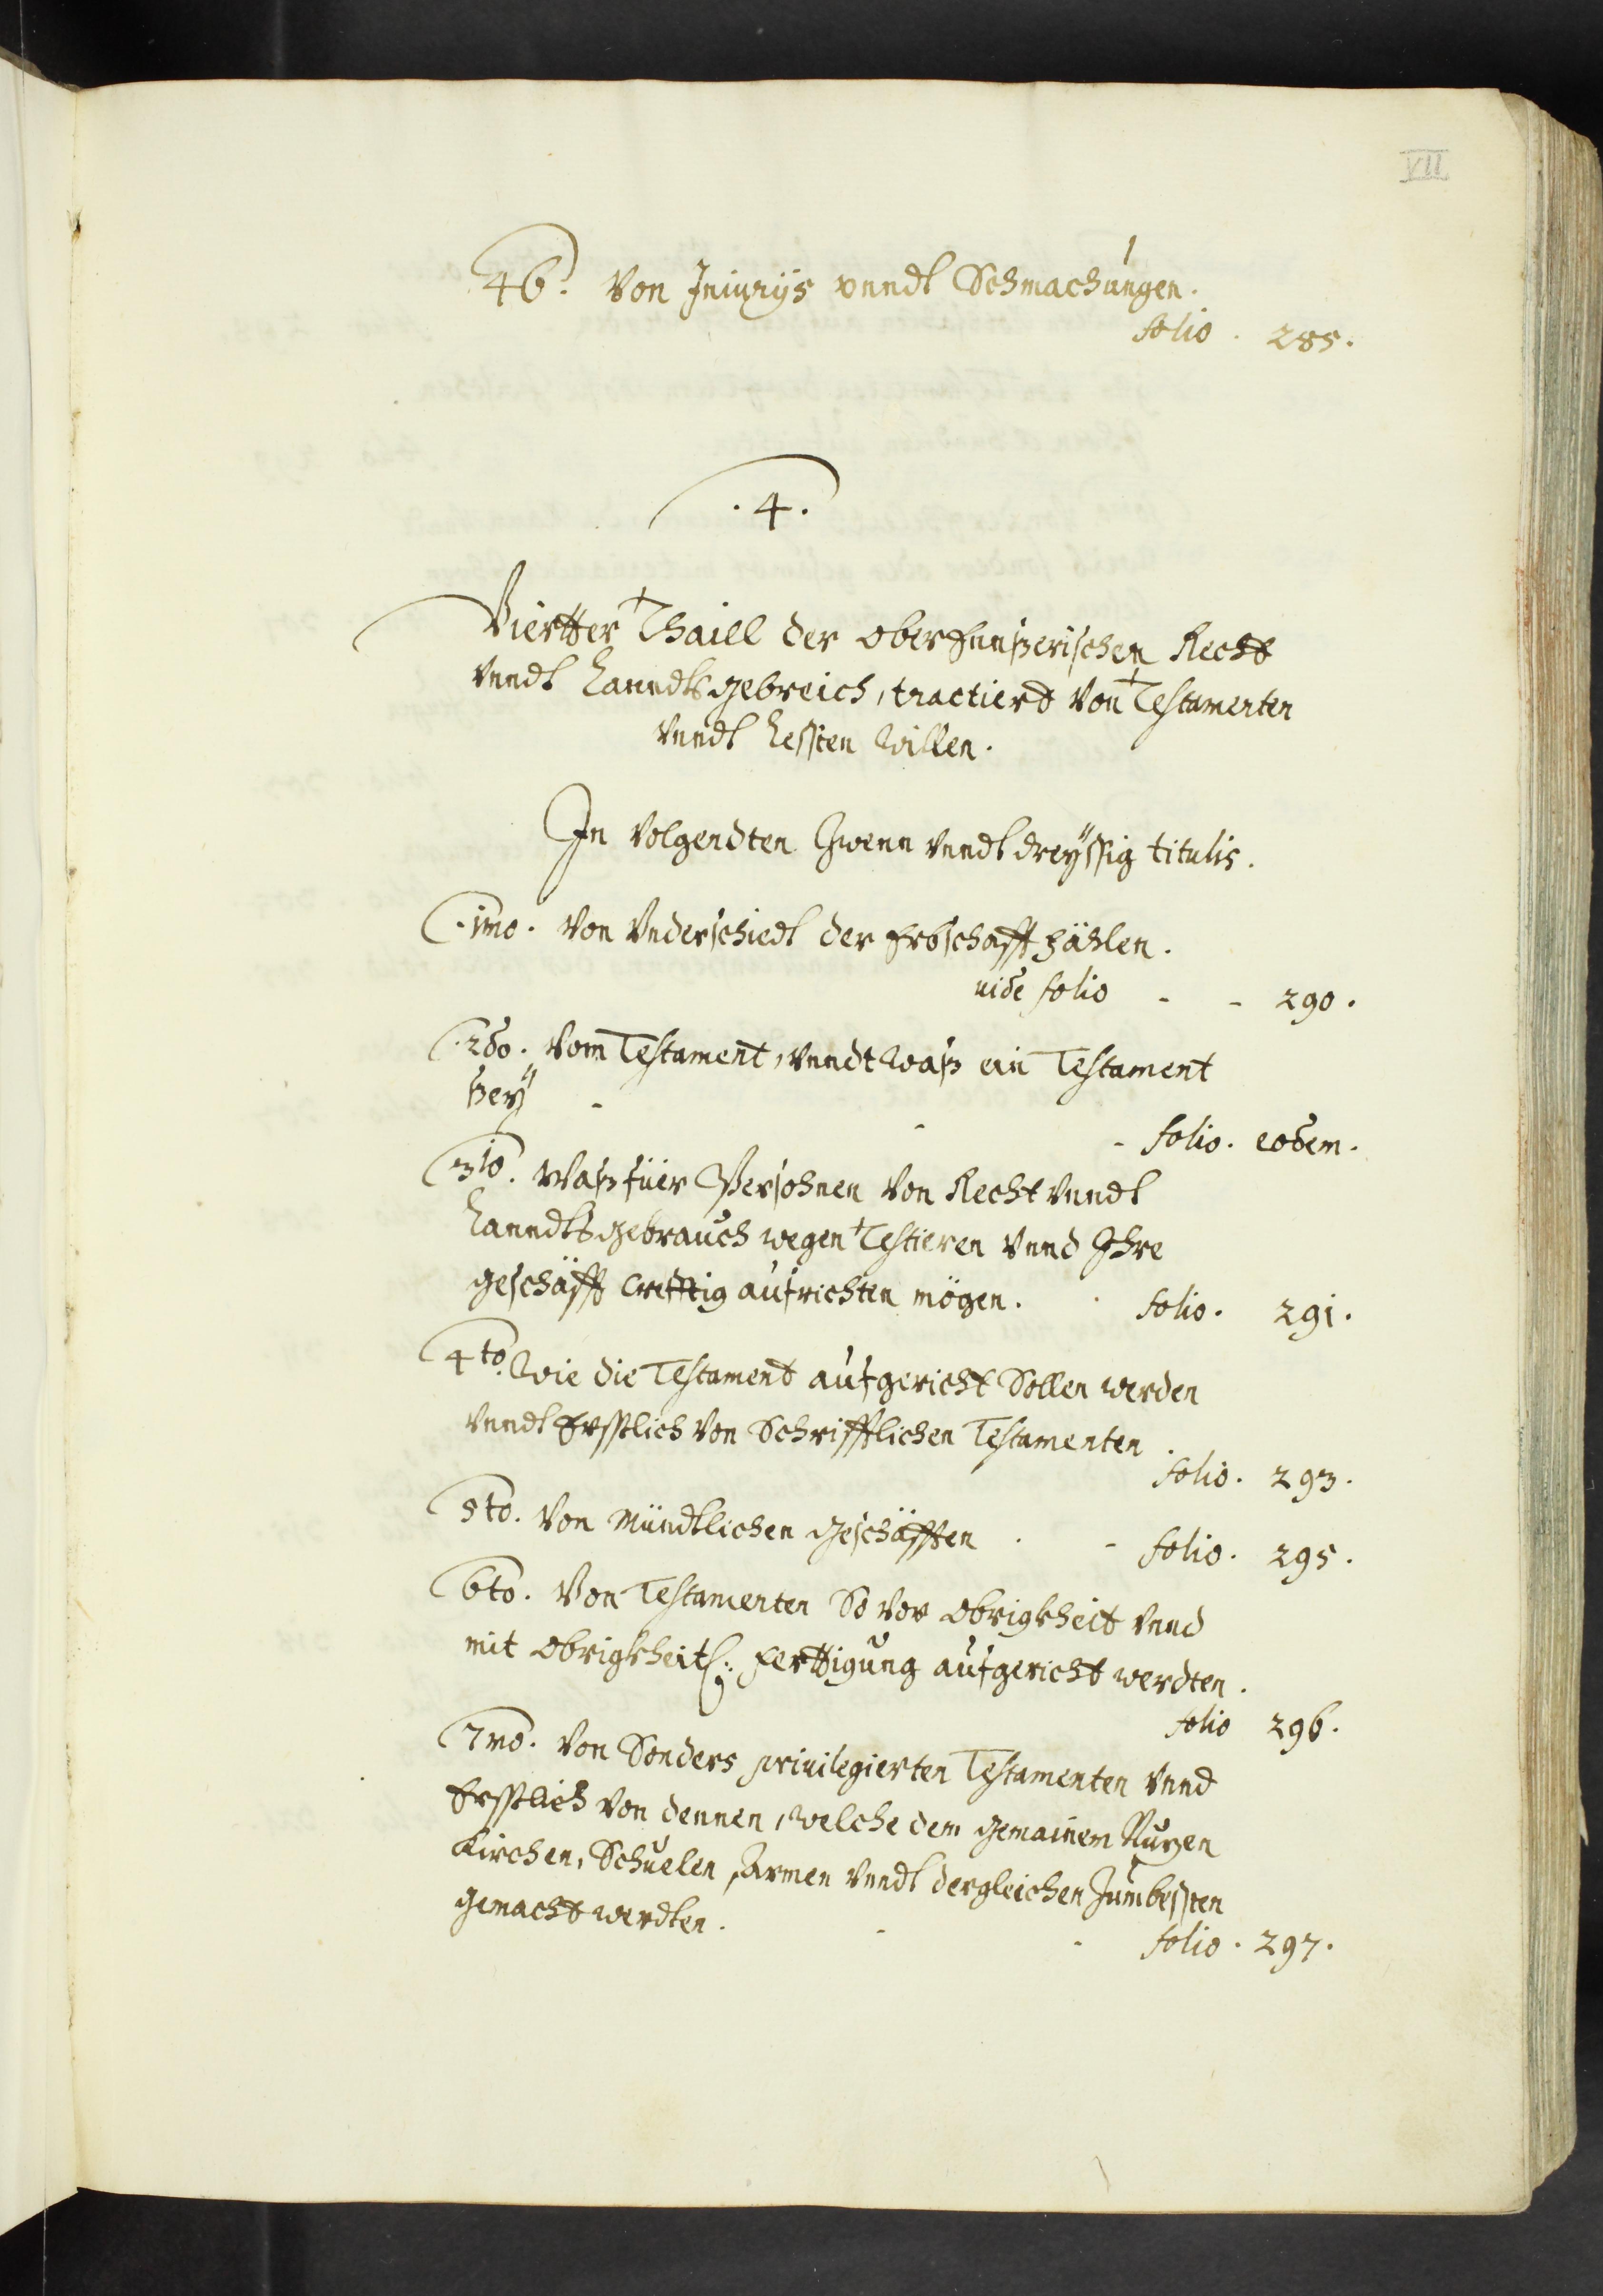 VII
46. Von Iniuryis vnndt Schmachungen.
folio . 285.
.4.
Viertter Thaill der ober Ennßerischen Recht
vnndt Lanndtsgebreich, tractierd Von Testamenten
vnndt lessten Willen.
In Volgendten Zwenn vnndt dreyssig titulis.
.1mo. Von Vnderschiedt der Erbschafft fählen.
uide folio - - 290.
.2do. Vom Testament, vnndt waß ein Testament
ßey -
- - folio. eodem.
3tio. Waß füer Persohnen Von Recht vnndt
Lanndtsgebrauch wegen Testieren vnnd Ihre
geschäfft crefftig aufrichten mögen. . folio. 291.
4to. Wie die Testament aufgericht Sollen werden
vnndt Ersstlich Von Schrifftlichen Testamenten
folio. 293.
5to. Von Mündtlichen geschäfften . - folio. 295.
6to. Von Testamenten So Vor obrigkheit vnnd
mit obrigkheitl: Ferttigung aufgericht werdten.
folio 296.
7mo. Von Sonders priuilegierten Testamenten vnnd
Ersstlich Von dennen, welche dem gemainem Nuzen
Kirchen, Schuelen, Armen vnndt dergleichen Zumbessten
gemacht werdten. - - folio. 297.